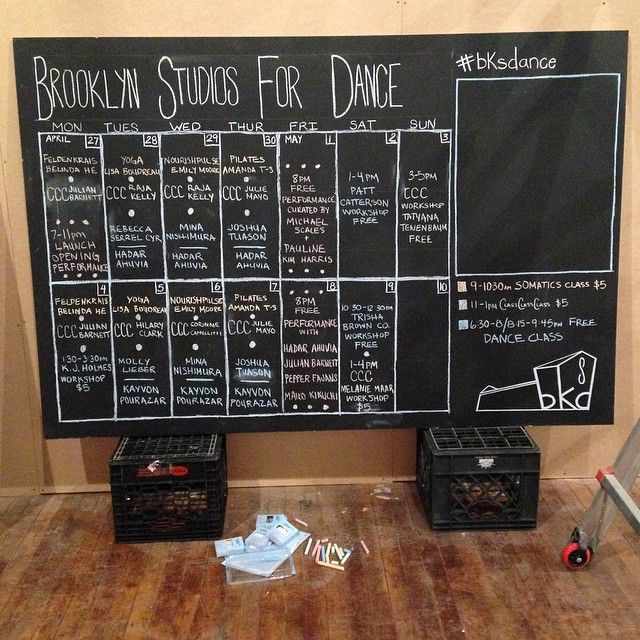 BROOKLYN STUDIOS FOR DANCE
#bKsdance
MON TUES WED THUR FRI SAT SUN
APRIL 27
FELDENKRAIS
BELINDA HE
CCC JULIAN
BARNETT
7-11pm
LAUNCH
OPENING
PERFORMANCE
28
YOGA
LISA BOUDREAU
CCC RAJA
KELLY
REBECCA
SERREL CYR
HADAR
AHUVIA
29
NOURISHPULSE
EMILY MOORE
CCC RAJA
KELLY
MINA
NISHIMURA
HADAR
AHUVIA
30
PILATES
AMANDA T-S
CCC JULIE
MAYO
JOSHUA
TUASON
HADAR
AHUVIA
MAY 1
8PM
FREE
PERFORMANCE
CURATED BY
MICHAEL
SCALES
PAULINE
KIM HARRIS
2
1-4PM
PATT
CATTERSON
WORKSHOP
FREE
3
3-5PM
CCC
WORKSHOP
TATYANA
TENENBAUM
FREE
4
FELDENKRAIS
BELINDA HE
CCC JULIAN
BARNETT
1:30-3:30PM
K.J. HOLMES
WORKSHOP
$5
5
YOGA
LISA BOUDREAU
CCC HILARY
CLARK
MOLLY
LIEBER
KAYVON
POURAZAR
6
NOURISHPULSE
EMILY MOORE
CCC CORINNE
MINA
NISHIMURA
KAYVON
POURAZAR
7
PILATES
AMANDA T-S
CCC JULIE
MAYO
JOSHUA
TUASON
KAYVON
POURAZAR
8
8PM
FREE
PERFORMANCE
WITH
HADAR AHUVIA
JULIAN BARNETT
PEPPER FAJANS
MAIKO KIKUCHI
9
10:30-12:30PM
TRISHA
BROWN CO.
WORKSHOP
FREE
1-4PM
CCC
MELANIE MAAR
WORKSHOP
$5
10
9-1030am SOMATICS CLASS $5
11-1pm CLASSCLASSCLASS $5
6:30-8/8:15-9:45pm FREE
DANCE CLASS
bkсd